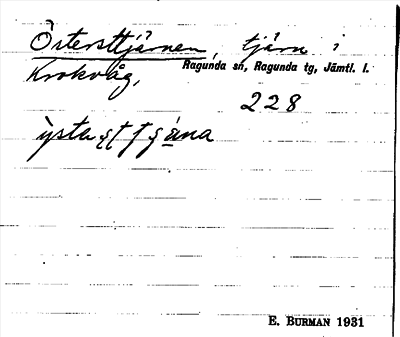 Östersttjärnen, tjärn i
Krokvåg, Ragunda sn, Ragunda tg, Jämtl. l.
228
E. BURMAN 1931